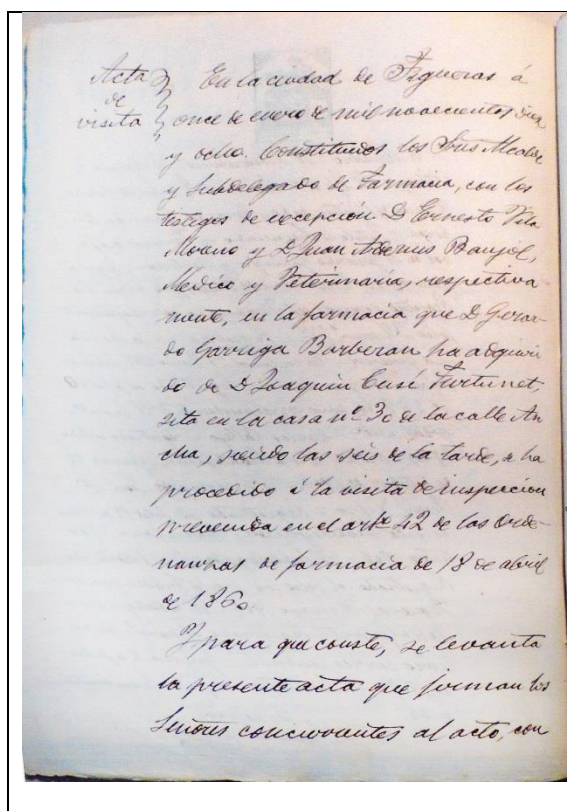 Acta
de
visita
En la ciudad de Figueras á
once de enero de mil novecientos diez
y ocho. Constituidos los Sres Alcalde
y Subdelegado de Farmacia, con los
testigos de excepción D Ernesto Vila
Moreno y D Juan Banyol,
Medico y Veterinario, respectiva
mente, en la farmacia que D Gerar-
do Garriga Barberan ha adquiri
do de D Joaquin Cusí Furtunet
sita en la casa nº 30 de la calle An
cha, siendo las seis de la tarde, se ha
procedido á la visita de inspeccion
prevenida en el artº 42 de las Orde-
nanzas de farmacia de 18 de abril
de 1860
Y para que conste, se levanta
la presente acta que firman los
Señores concurrentes al acto, con